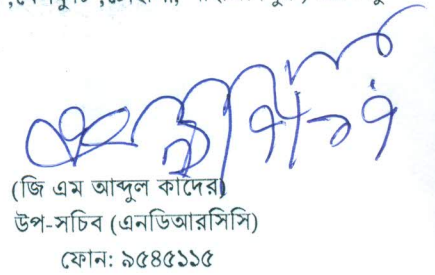 (জি এম আব্দুল কাদের)
উপ-সচিব (এনডিআরসিসি)
ফোন: ৯৫৪৫১১৫